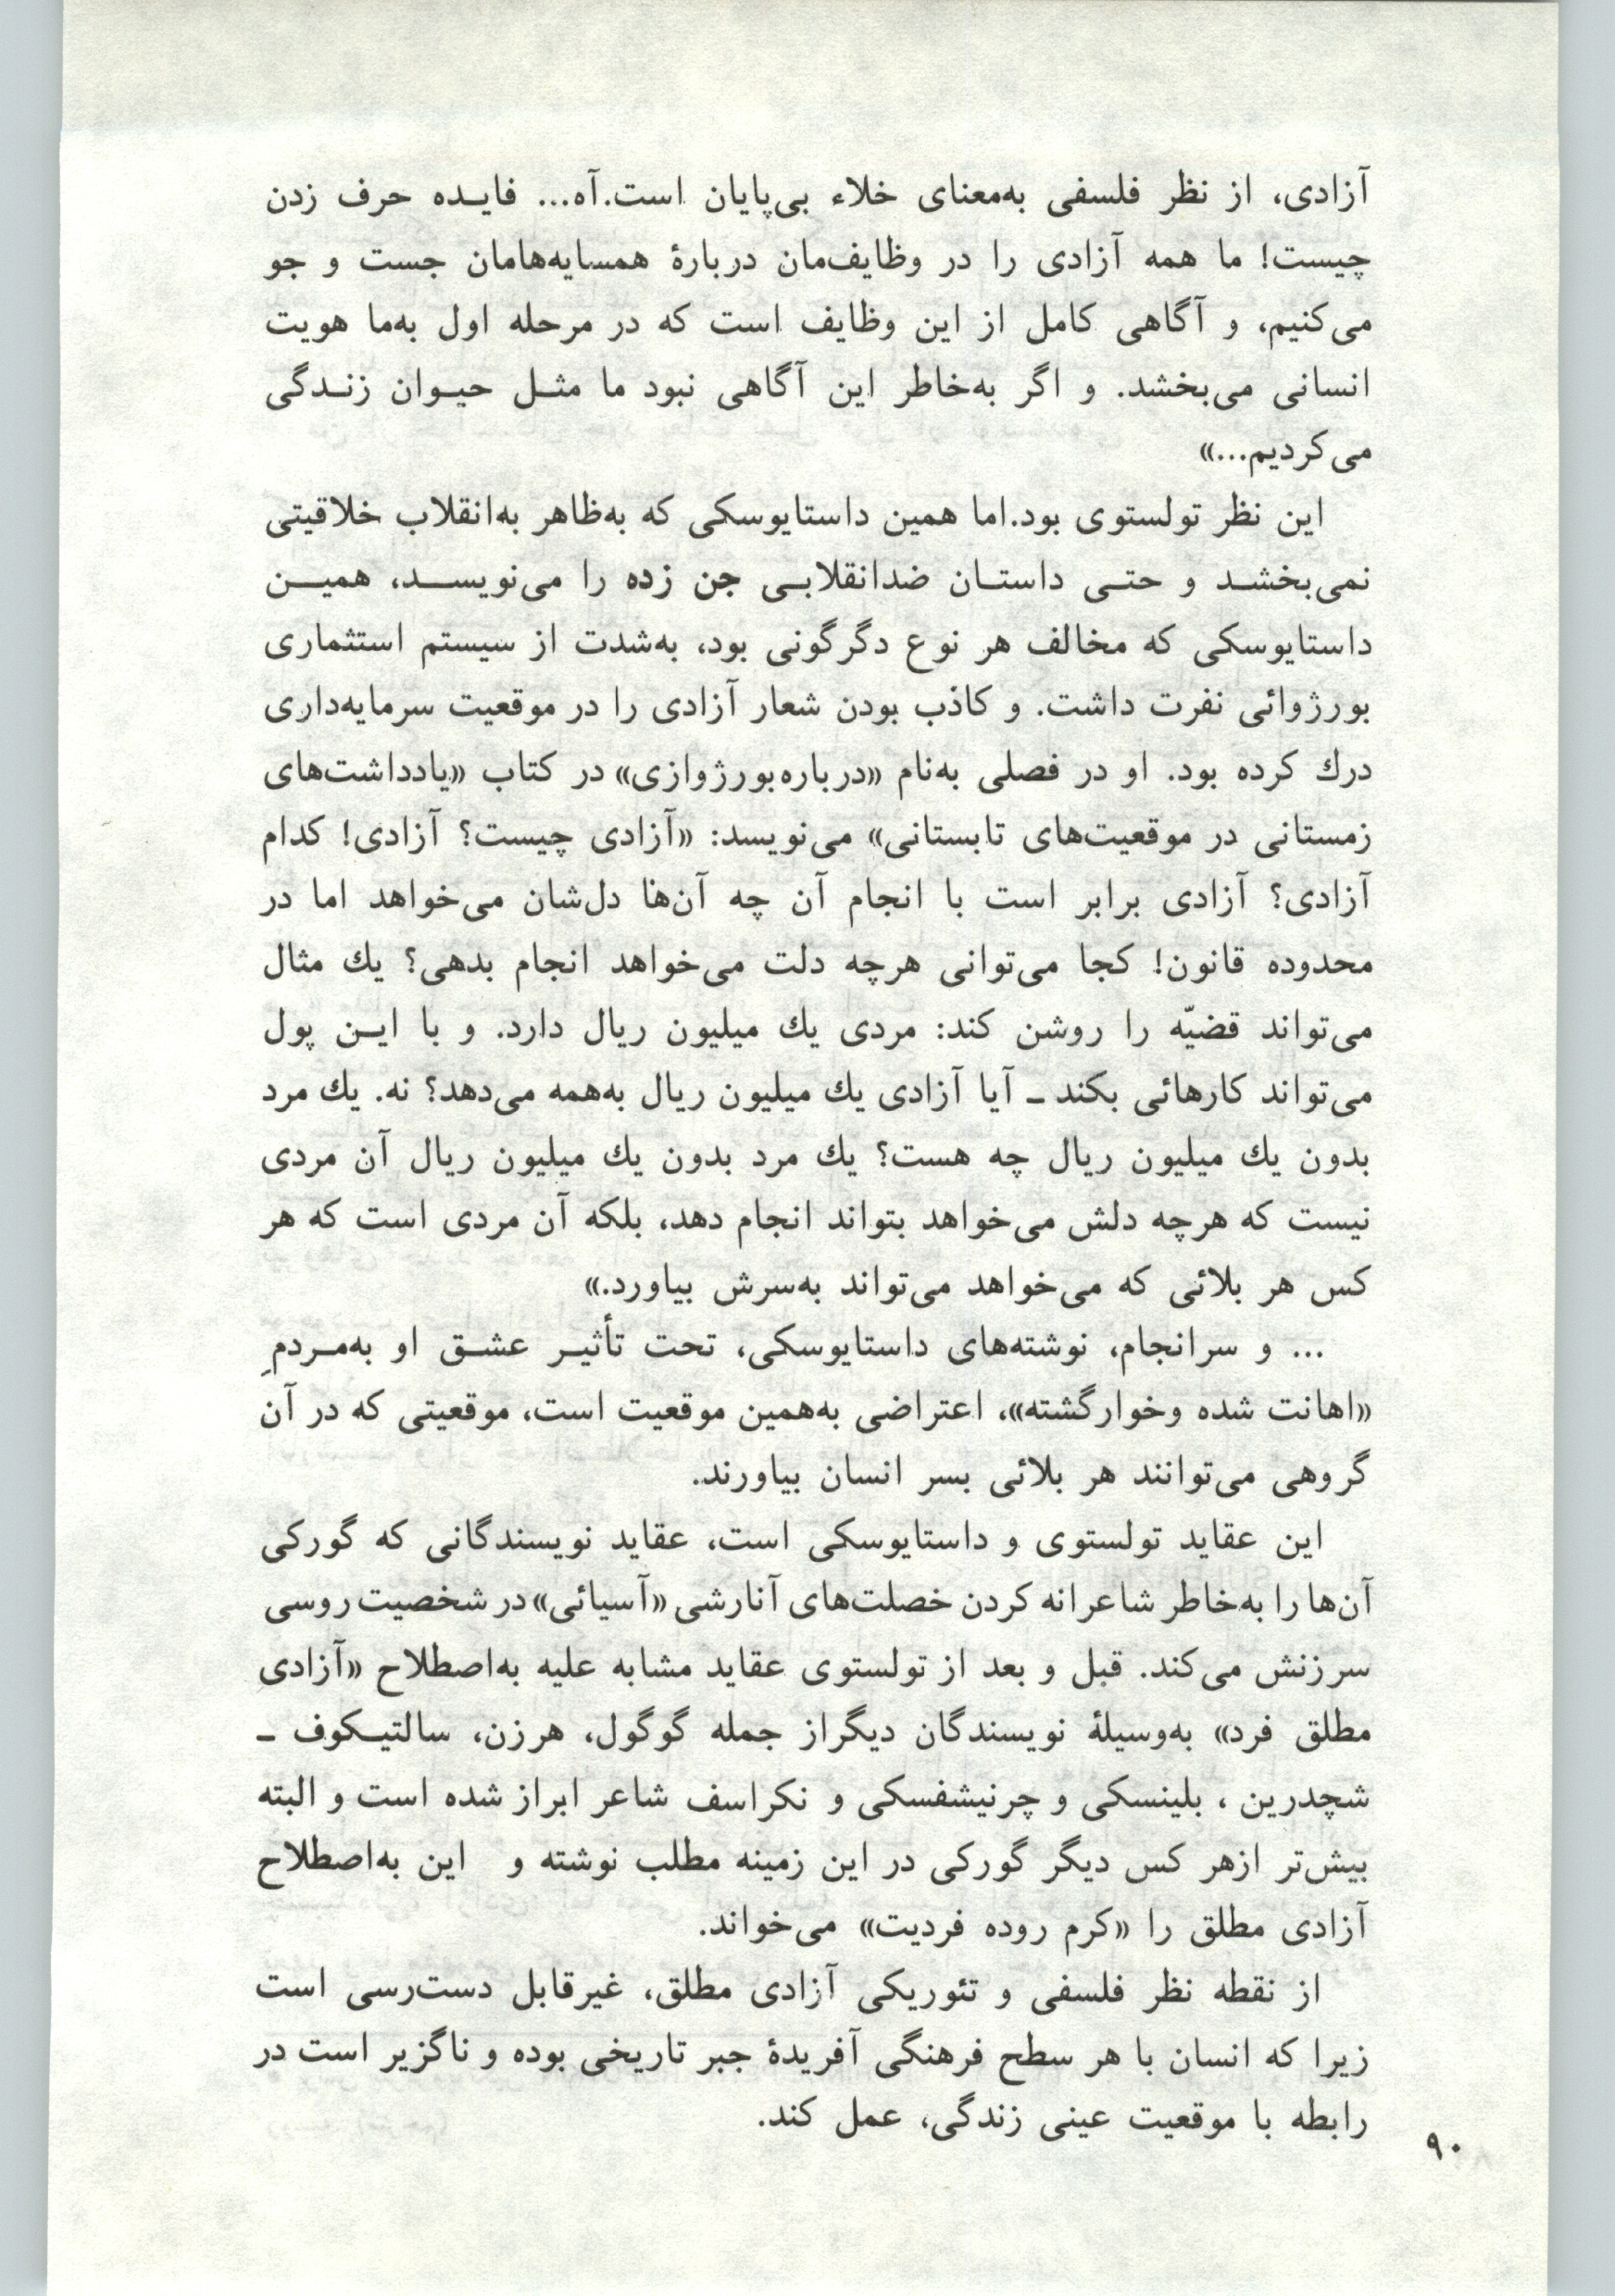 آزادی، از نظر فلسفی به‌معنای خلاء بی‌پایان است.آه... فایـده حرف زدن
چیست! ما همه آزادی را در وظایف‌مان دربارهٔ همسایه‌هامان جست و جو
می‌کنیم، و آگاهی کامل از این وظایف است که در مرحله اول به‌ما هویت
انسانی می‌بخشد. و اگر به‌خاطر این آگاهی نبود ما مثـل حیـوان زنـدگی
می‌کردیم...»
این نظر تولستوی بود.اما همین داستایوسکی که به‌ظاهر به‌انقلاب خلاقیتی
نمی‌بخشـد و حتـی داستـان ضدانقلابـی جن زده را می‌نویسـد، همیـن
داستایوسکی که مخالف هر نوع دگرگونی بود، به‌شدت از سیستم استثماری
بورژوائی نفرت داشت. و کاذب بودن شعار آزادی را در موقعیت سرمایه‌داری
درك کرده بود. او در فصلی به‌نام «درباره‌بورژوازی» در کتاب «یادداشت‌های
زمستانی در موقعیت‌های تابستانی» می‌نویسد: «آزادی چیست؟ آزادی! کدام
آزادی؟ آزادی برابر است با انجام آن چه آن‌ها دل‌شان می‌خواهد اما در
محدوده قانون! کجا می‌توانی هرچه دلت می‌خواهد انجام بدهی؟ یك مثال
می‌تواند قضیّه را روشن کند: مردی یك میلیون ریال دارد. و با ایـن پول
می‌تواند کارهائی بکند ـ آیا آزادی یك میلیون ریال به‌همه می‌دهد؟ نه. یك مرد
بدون یك میلیون ریال چه هست؟ یك مرد بدون یك میلیون ریال آن مردی
نیست که هرچه دلش می‌خواهد بتواند انجام دهد، بلکه آن مردی است که هر
کس هر بلائی که می‌خواهد می‌تواند به‌سرش بیاورد.»
... و سرانجام، نوشته‌های داستایوسکی، تحت تأثیـر عشـق او به‌مـردمِ
«اهانت شده وخوارگشته»، اعتراضی به‌همین موقعیت است، موقعیتی که در آن
گروهی می‌توانند هر بلائی بسر انسان بیاورند.
این عقاید تولستوی و داستایوسکی است، عقاید نویسندگانی که گورکی
آن‌ها را به‌خاطر شاعرانه کردن خصلت‌های آنارشی «آسیائی» در شخصیت روسی
سرزنش می‌کند. قبل و بعد از تولستوی عقاید مشابه علیه به‌اصطلاح «آزادی
مطلق فرد» به‌وسیلهٔ نویسندگان دیگراز جمله گوگول، هرزن، سالتیـکوف ـ
شچدرین ، بلینسکی و چرنیشفسکی و نکراسف شاعر ابراز شده است و البته
بیش‌تر ازهر کس دیگر گورکی در این زمینه مطلب نوشته و این به‌اصطلاح
آزادی مطلق را «کرم روده فردیت» می‌خواند.
از نقطه نظر فلسفی و تئوریکی آزادی مطلق، غیرقابل دست‌رسی است
زیرا که انسان با هر سطح فرهنگی آفریدهٔ جبر تاریخی بوده و ناگزیر است در
رابطه با موقعیت عینی زندگی، عمل کند.
۹۰